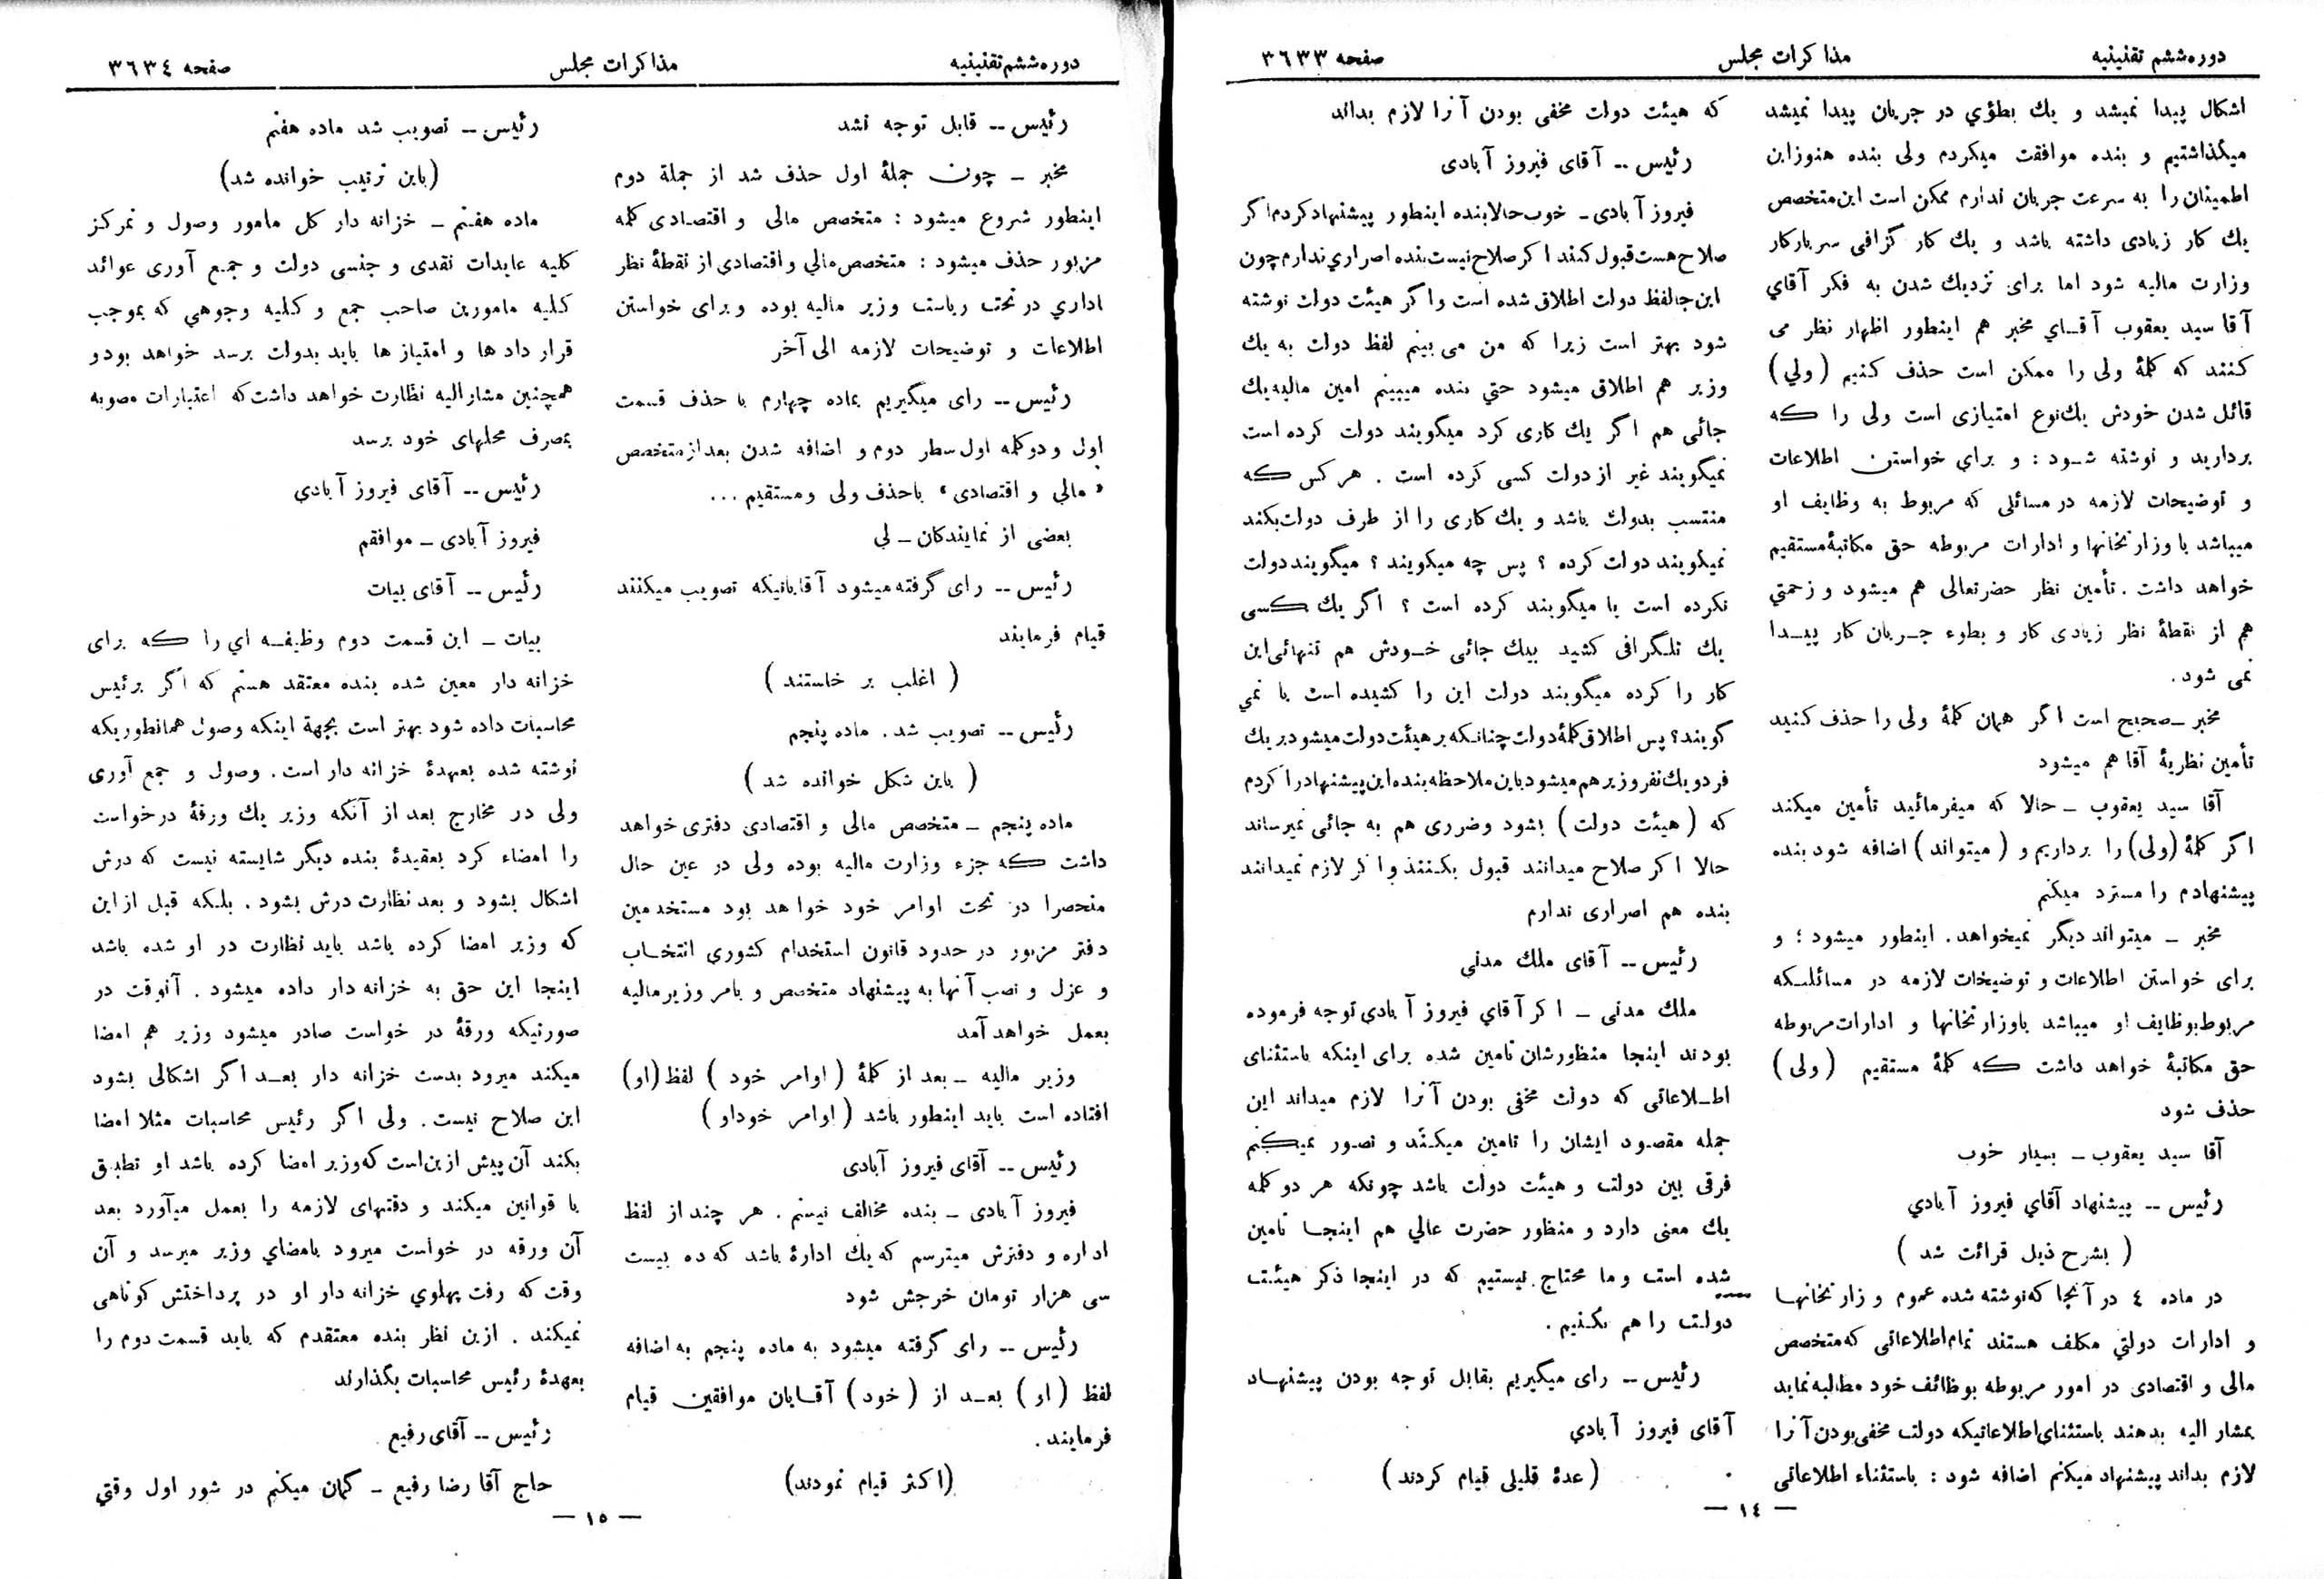 دوره ششم تقنینیه
مذاکرات مجلس
صفحه ۳٦۳۳
اشکال پیدا نمیشد و یك بطؤي در جریان پیدا نمیشد
میگذاشتیم و بنده موافقت میکردم ولی بنده هنوز این
اطمینان را به سرعت جریان ندارم ممکن است این متخصص
یك کار زیادی داشته باشد و یك کار گزافی سر بار کار
وزارت مالیه شود اما برای نزدیك شدن به فکر آقاي
آقا سید یعقوب آقـاي مخبر هم اینطور اظهار نظر می
کنند که کلمهٔ ولی را ممکن است حذف کنیم (ولي)
قائل شدن خودش یك نوع امتیازی است ولی را که
بردارید و نوشته شـود : و براي خواستن اطلاعات
و توضیحات لازمه در مسائلی که مربوط به وظایف او
میباشد با وزارتخانها و ادارات مربوطه حق مکاتبهٔ مستقیم
خواهد داشت . تأمین نظر حضرتعالی هم میشود و زحمتي
هم از نقطهٔ نظر زیادی کار و بطوء جـریان کار پیـدا
نمی شود.
مخبر ـ صحیح است اگر همان کلمهٔ ولی را حذف کنید
تأمین نظریهٔ آقا هم میشود
آقا سید یعقوب ـ حالا که میفرمائید تأمین میکند
اگر کلمهٔ (ولی) را برداریم و (میتواند) اضافه شود بنده
پیشنهادم را مسترد میکنم
مخبر ـ میتواند دیگر نمیخواهد. اینطور میشود ؛ و
برای خواستن اطلاعات و توضیحات لازمه در مسائلیکه
مربوط بوظایف او میباشد باوزارتخانها و ادارات مربوطه
حق مکاتبهٔ خواهد داشت که کلمهٔ مستقیم (ولی)
حذف شود
آقا سید یعقوب ـ بسیار خوب
رئیس -- پیشنهاد آقاي فیروز آبادي
( بشرح ذیل قرائت شد )
در ماده ٤ در آنجا که نوشته شده عموم وزارتخانهـا
و ادارات دولتي مکلف هستند تمام اطلاعاتی که متخصص
مالی و اقتصادی در امور مربوطه بوظائف خود مطالبه نماید
بمشار الیه بدهند باستثنای اطلاعاتیکه دولت مخفی بودن آنرا
لازم بداند پیشنهاد میکنم اضافه شود : باستثناء اطلاعاتی
که هیئت دولت مخفی بودن آنرا لازم بداند
رئیس -- آقای فیروز آبادی
فیروز آبادی ـ خوب حالا بنده اینطور پیشنهاد کردم اگر
صلاح هست قبول کنند اگر صلاح نیست بنده اصراري ندارم چون
این جا لفظ دولت اطلاق شده است واگر هیئت دولت نوشته
شود بهتر است زیرا که من می بینم لفظ دولت به یك
وزیر هم اطلاق میشود حتي بنده میبینم امین مالیه یك
جائی هم اگر یك کاری کرد میگویند دولت کرده است
نمیگویند غیر از دولت کسی کرده است . هر کس که
منتسب بدولت باشد و یك کاری را از طرف دولت بکند
نمیگویند دولت کرده ؟ پس چه میگویند ؟ میگویند دولت
نکرده است یا میگویند کرده است ؟ اگر یك کسی
یك تلگرافی کشید بیك جائی خـودش هم تنهائی این
کار را کرده میگویند دولت این را کشیده است یا نمي
گویند؟ پس اطلاق کلمهٔ دولت چنانکه بر هیئت دولت میشود بر یك
فرد و یك نفر وزیر هم میشود باین ملاحظه بنده این پیشنهاد را کردم
که (هیئت دولت) بشود وضرری هم به جائی نمیرساند
حالا اگر صلاح میدانند قبول بکنند و اگر لازم نمیدانند
بنده هم اصراری ندارم
رئیس -- آقای ملك مدنی
ملك مدنی ـ اگر آقاي فیروز آبادی توجه فرموده
بودند اینجا منظورشان تامین شده برای اینکه باستثنای
اطـلاعاتی که دولت مخفی بودن آنرا لازم میداند این
جمله مقصود ایشان را تامین میکند و تصور نمیکنم
فرقی بین دولت و هیئت دولت باشد چونکه هر دو کلمه
یك معنی دارد و منظور حضرت عالي هم اینجـا تامین
شده است و ما محتاج نیستیم که در اینجا ذکر هیئت
دولت را هم بکنیم .
رئیس -- رای میگیریم بقابل توجه بودن پیشنهـاد
آقای فیروز آبادي
(عدهٔ قلیلی قیام کردند)
— ١٤ —
دوره ششم تقنینیه
مذاکرات مجلس
صفحه ۳٦۳٤
رئیس -- قابل توجه نشد
مخبر ـ چون جملهٔ اول حذف شد از جملهٔ دوم
اینطور شروع میشود : متخصص مالی و اقتصادی کلمه
مزبور حذف میشود : متخصص مالي و اقتصادي از نقطهٔ نظر
اداري در تحت ریاست وزیر مالیه بوده و برای خواستن
اطلاعات و توضیحات لازمه الی آخر
رئیس -- رای میگیریم بماده چهارم با حذف قسمت
اول و دو کلمه اول سطر دوم و اضافه شدن بعد از متخصص
«مالی و اقتصادی» باحذف ولی و مستقیم ...
بعضی از نمایندگان ـ لي
رئیس -- رای گرفته میشود آقایانیکه تصویب میکنند
قیام فرمایند
( اغلب بر خاستند )
رئیس -- تصویب شد . ماده پنجم
( باین شکل خوانده شد )
ماده پنجم ـ متخصص مالی و اقتصادی دفتری خواهد
داشت که جزء وزارت مالیه بوده ولی در عین حال
منحصرا در تحت اوامر خود خواهد بود مستخدمین
دفتر مزبور در حدود قانون استخدام کشوری انتخـاب
و عزل و نصب آنها به پیشنهاد متخصص و بامر وزیر مالیه
بعمل خواهد آمد
وزیر مالیه ـ بعد از کلمهٔ (اوامر خود ) لفظ (او)
افتاده است باید اینطور باشد (اوامر خود او)
رئیس -- آقای فیروز آبادی
فیروز آبادی ـ بنده مخالف نیستم . هر چند از لفظ
اداره و دفترش میترسم که یك ادارهٔ باشد که ده بیست
سی هزار تومان خرجش شود
رئیس -- رای گرفته میشود به ماده پنجم به اضافه
لفظ (او) بعـد از (خود) آقـایان موافقین قیام
فرمایند .
(اکثر قیام نمودند)
رئیس -- تصویب شد ماده هفتم
(باین ترتیب خوانده شد)
ماده هفتم ـ خزانه دار کل مامور وصول و تمرکز
کلیه عایدات نقدی و جنسی دولت و جمع آوری عوائد
کلیه مامورین صاحب جمع و کلیه وجوهي که بموجب
قرار داد ها و امتیاز ها باید بدولت برسد خواهد بود و
همچنین مشار الیه نظارت خواهد داشت که اعتبارات مصوبه
بمصرف محلهای خود برسد
رئیس -- آقای فیروز آبادي
فیروز آبادی ـ موافقم
رئیس -- آقای بیات
بیات ـ این قسمت دوم وظیفـه اي را که برای
خزانه دار معین شده بنده معتقد هستم که اگر برئیس
محاسبات داده شود بهتر است بجهة اینکه وصول همانطوریکه
نوشته شده بعهدهٔ خزانه دار است . وصول و جمع آوری
ولی در مخارج بعد از آنکه وزیر یك ورقهٔ درخواست
را امضاء کرد بعقیدهٔ بنده دیگر شایسته نیست که درش
اشکال بشود و بعد نظارت درش بشود . بلکه قبل از این
که وزیر امضا کرده باشد باید نظارت در او شده باشد
اینجا این حق به خزانه دار داده میشود . آنوقت در
صورتیکه ورقهٔ در خواست صادر میشود وزیر هم امضا
میکند میرود بدست خزانه دار بعـد اگر اشکالی بشود
این صلاح نیست . ولی اگر رئیس محاسبات مثلا امضا
بکند آن پیش از ین است که وزیر امضا کرده باشد او تطبیق
با قوانین میکند و دقتهای لازمه را بعمل میآورد بعد
آن ورقه در خواست میرود بامضاي وزیر میرسد و آن
وقت که رفت پهلوي خزانه دار او در پرداختش کوتاهی
نمیکند . ازین نظر بنده معتقدم که باید قسمت دوم را
بعهدهٔ رئیس محاسبات بگذارند
رئیس -- آقای رفیع
حاج آقا رضا رفیع ـ گمان میکنم در شور اول وقتي
— ١٥ —